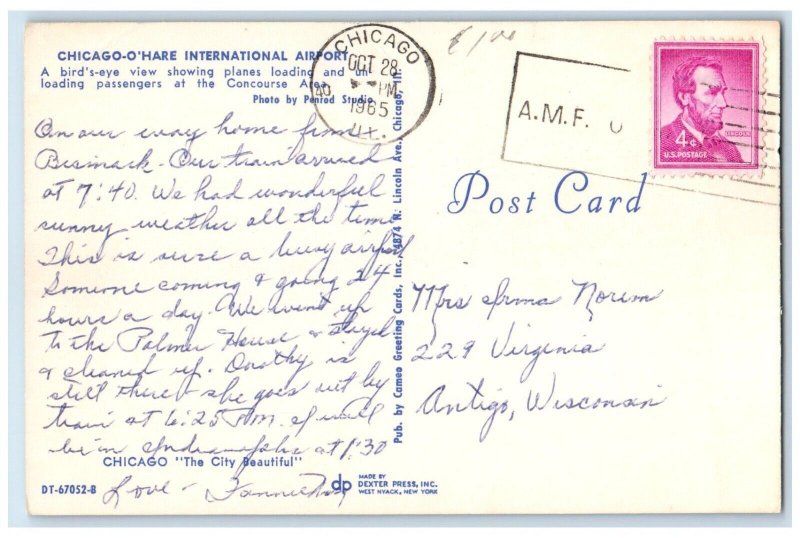 CHICAGO-O'HARE INTERNATIONAL AIRPORT
A bird's-eye view showing planes loading and un-
loading passengers at the Concourse Area.
Photo by Penrod Studio
On our way home from
Bismarck. Our train arrived
at 7:40. We had wonderful
sunny weather all the time
This is sure a busy airport
Someone coming & going 24
hours a day. We went up
to the Palmer House & stayed
& cleaned up. Dorothy is
still there - she goes out by
train at 6:25 P.M. I will
be in Indianapolis at 1:30
CHICAGO "The City Beautiful"
DT-67052-B
Love - Fannie
Pub. by Cameo Greeting Cards, Inc., 4874 N. Lincoln Ave., Chicago, Ill.
dp
MADE BY
DEXTER PRESS, INC.
WEST NYACK, NEW YORK
CHICAGO
OCT 28
PM
1965
A.M.F.
4¢
LINCOLN
U.S. POSTAGE
Post Card
Mrs Irma Norem
229 Virginia
Antigo, Wisconsin